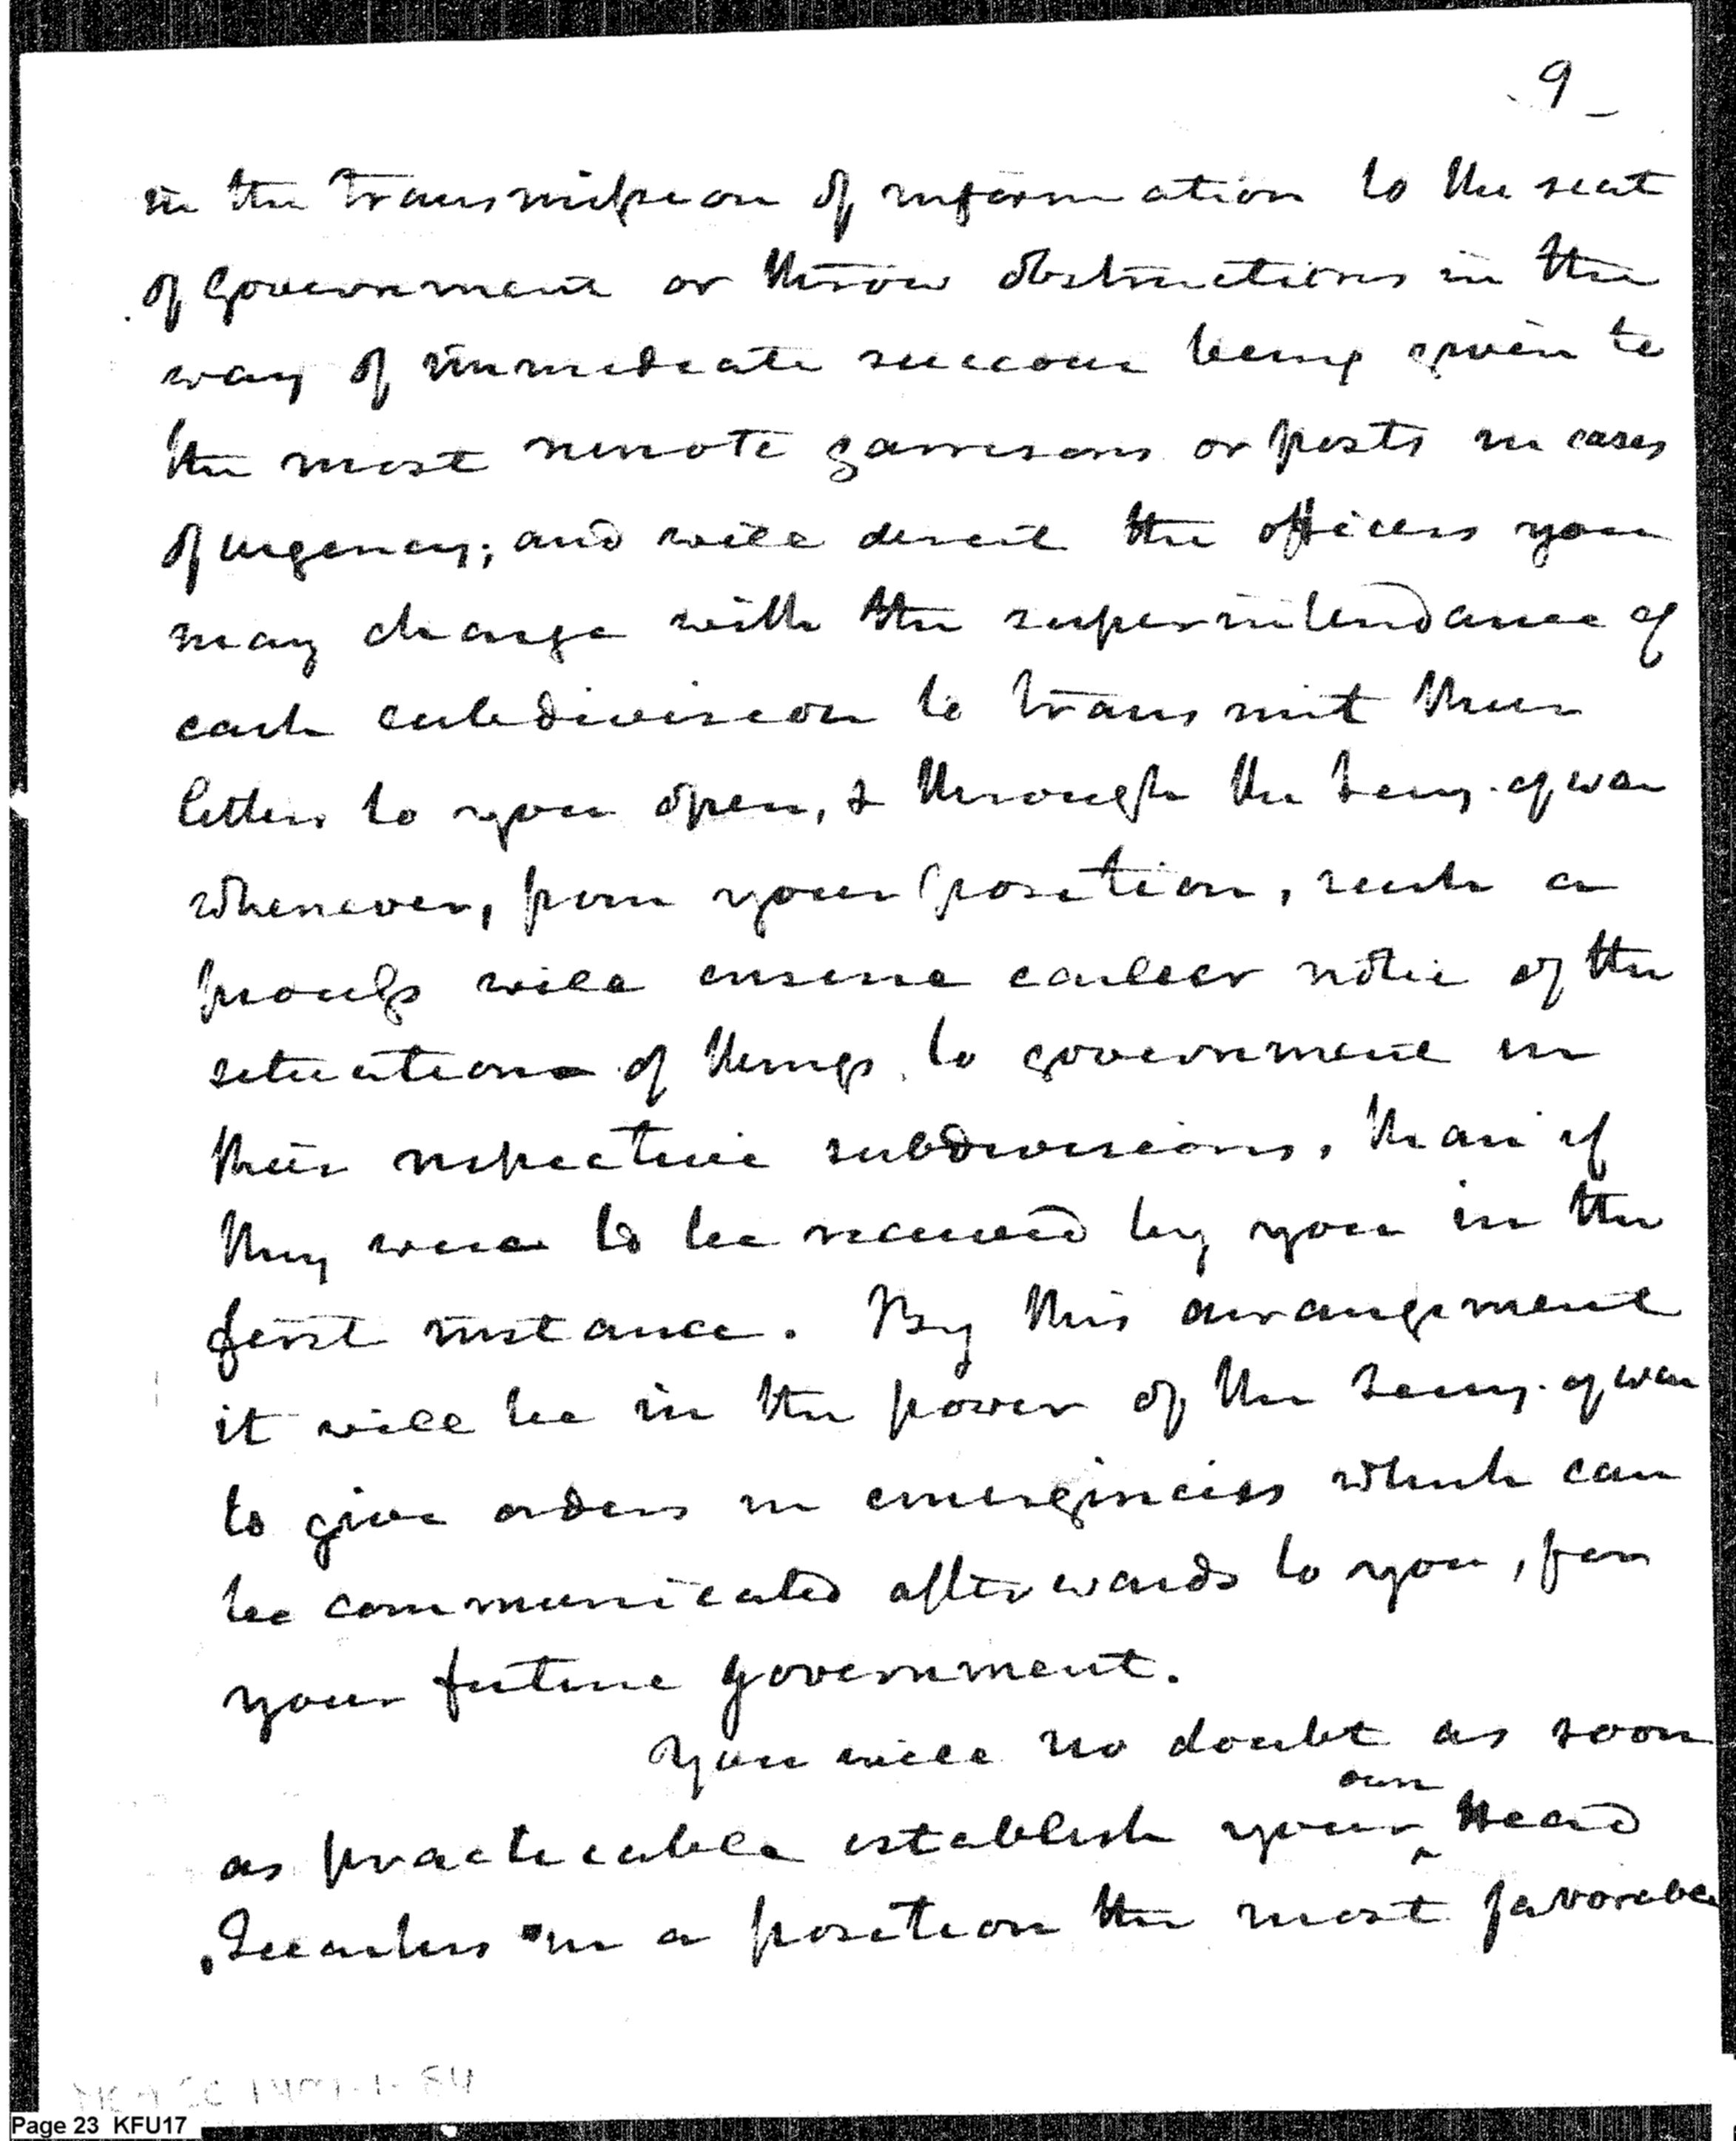 9
in the transmission of information to the seat
of Government or throw obstructions in the
way of immediate succour being given to
the most remote garrisons or posts in cases
of urgency; and will direct the officers you
may charge with the superintendance of
each subdivision to transmit their
letters to you open, & through the Secy. of war
whenever, from your position, such a
process will ensure earlier notice of the
situation of things to government in
their respective subdivisions, than if
they were to be received by you in the
first instance. By this arrangement
it will be in the power of the Secy. of war
to give orders in emergincies which can
be communicated afterwards to you, for
your future government.
You will no doubt as soon
as practicable establish your own Head
Quarters in a position the most favorable
Page 23 KFU17